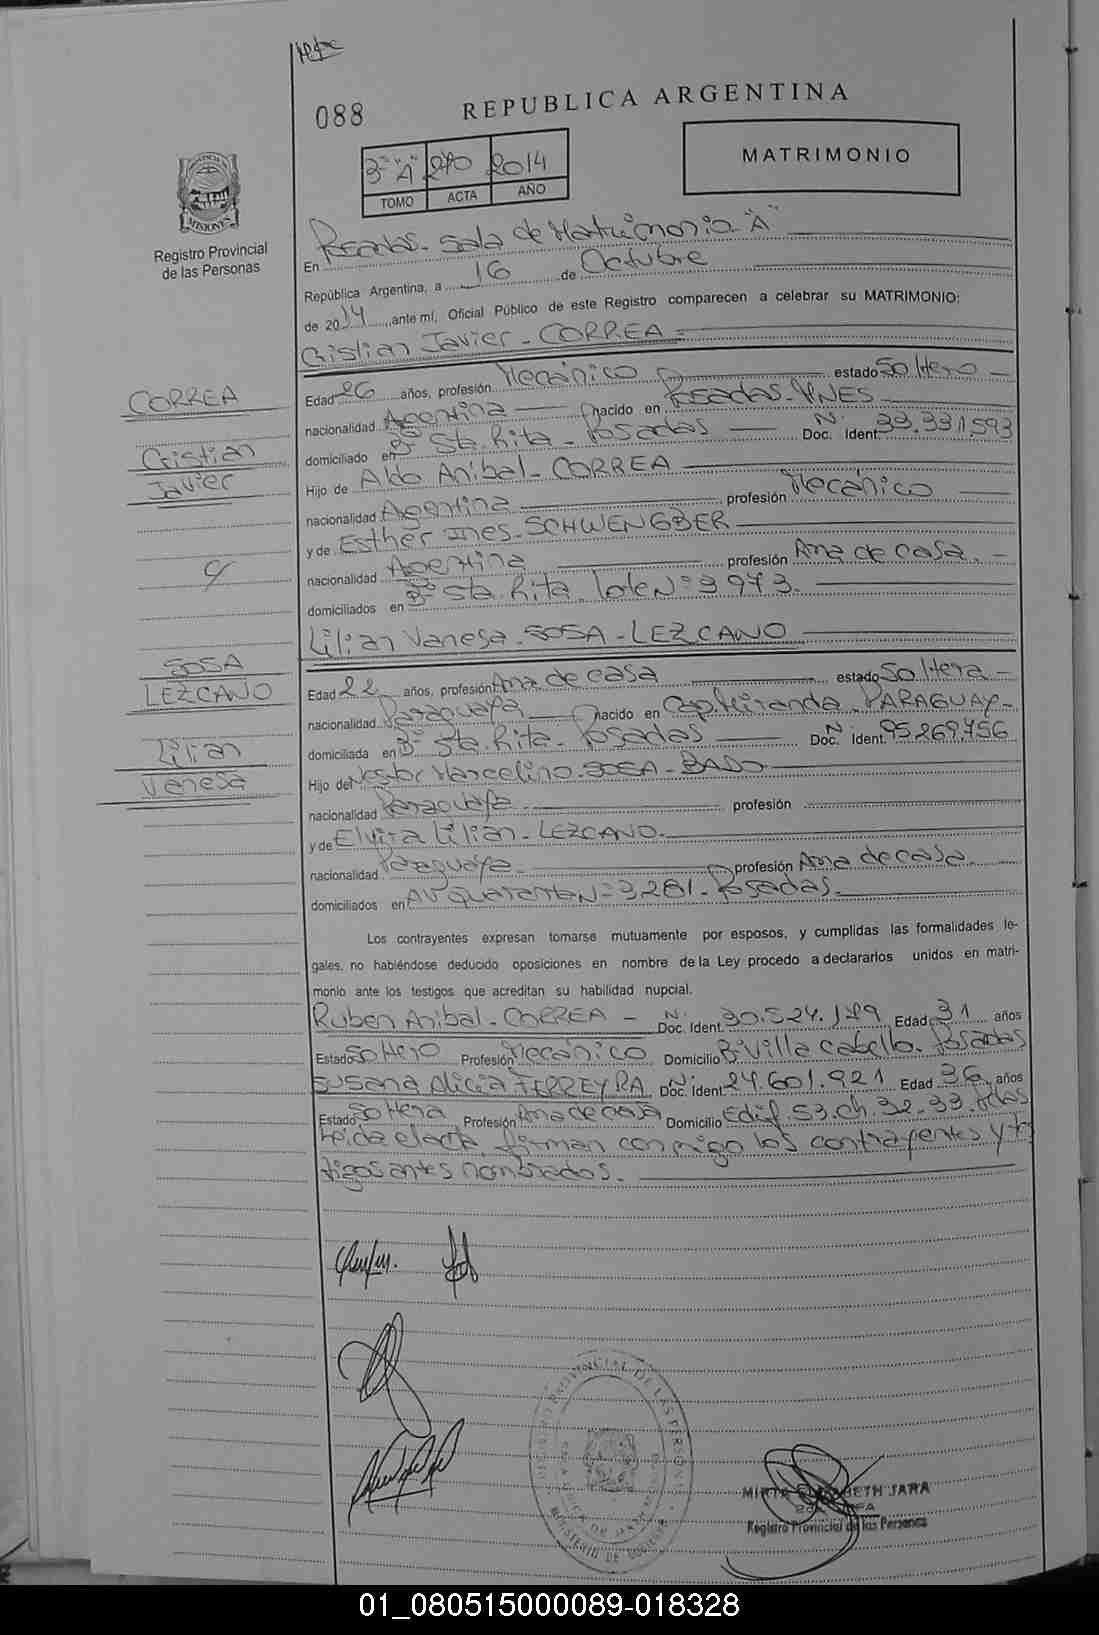 088
REPUBLICA ARGENTINA
3º "A" 270 2014
TOMO ACTA AÑO
MATRIMONIO
PROVINCIA DE MISIONES
Registro Provincial
de las Personas
En Posadas - Sala de Matrimonio "A"
República Argentina, a 16 de Octubre
de 2014, ante mí, Oficial Público de este Registro comparecen a celebrar su MATRIMONIO:
Cristian Javier - CORREA =
CORREA
Cristian
Javier
Edad 26 años, profesión Mecánico estado Soltero
nacionalidad Argentina nacido en Posadas - MNES
domiciliado en Bº Sta. Rita - Posadas Nº Doc. Ident. 33.331.593
Hijo de Aldo Anibal - CORREA
nacionalidad Argentina profesión Mecánico
y de Esther Ines - SCHWENGBER
nacionalidad Argentina profesión Ama de casa. -
domiciliados en Bº Sta. Rita Lote Nº 3973.
Lilian Vanesa - SOSA - LEZCANO
SOSA
LEZCANO
Lilian
Vanesa
Edad 22 años, profesión Ama de casa estado Soltera -
nacionalidad Paraguaya nacido en Cap. Miranda - PARAGUAY -
domiciliada en Bº Sta. Rita - Posadas Nº Doc. Ident. 95.269.756
Hijo de Nestor Marcelino - SOSA - BADO
nacionalidad Paraguaya profesión
y de Elvira Lilian - LEZCANO.
nacionalidad Paraguaya profesión Ama de casa.
domiciliados en Nº 3281 - Posadas.
Los contrayentes expresan tomarse mutuamente por esposos, y cumplidas las formalidades le-
gales, no habiéndose deducido oposiciones en nombre de la Ley procedo a declararlos unidos en matri-
monio ante los testigos que acreditan su habilidad nupcial.
Ruben Anibal - CORREA - Nº Doc. Ident. 30.524.179 Edad 31 años
Estado Soltero Profesión Mecánico Domicilio Bº Villa Cabello - Posadas
Susana Alicia FERREYRA Nº Doc. Ident. 24.601.921 Edad 36 años
Estado Soltera Profesión Ama de casa Domicilio Edif. 53. ch. 32-33. Pdas
Leida el acta, firman conmigo los contrayentes y tes
tigos antes nombrados.
REGISTRO PROVINCIAL DE LAS PERSONAS
MINISTERIO DE GOBIERNO
MIRTA ELIZABETH JARA
Registro Provincial de las Personas
01_080515000089-018328